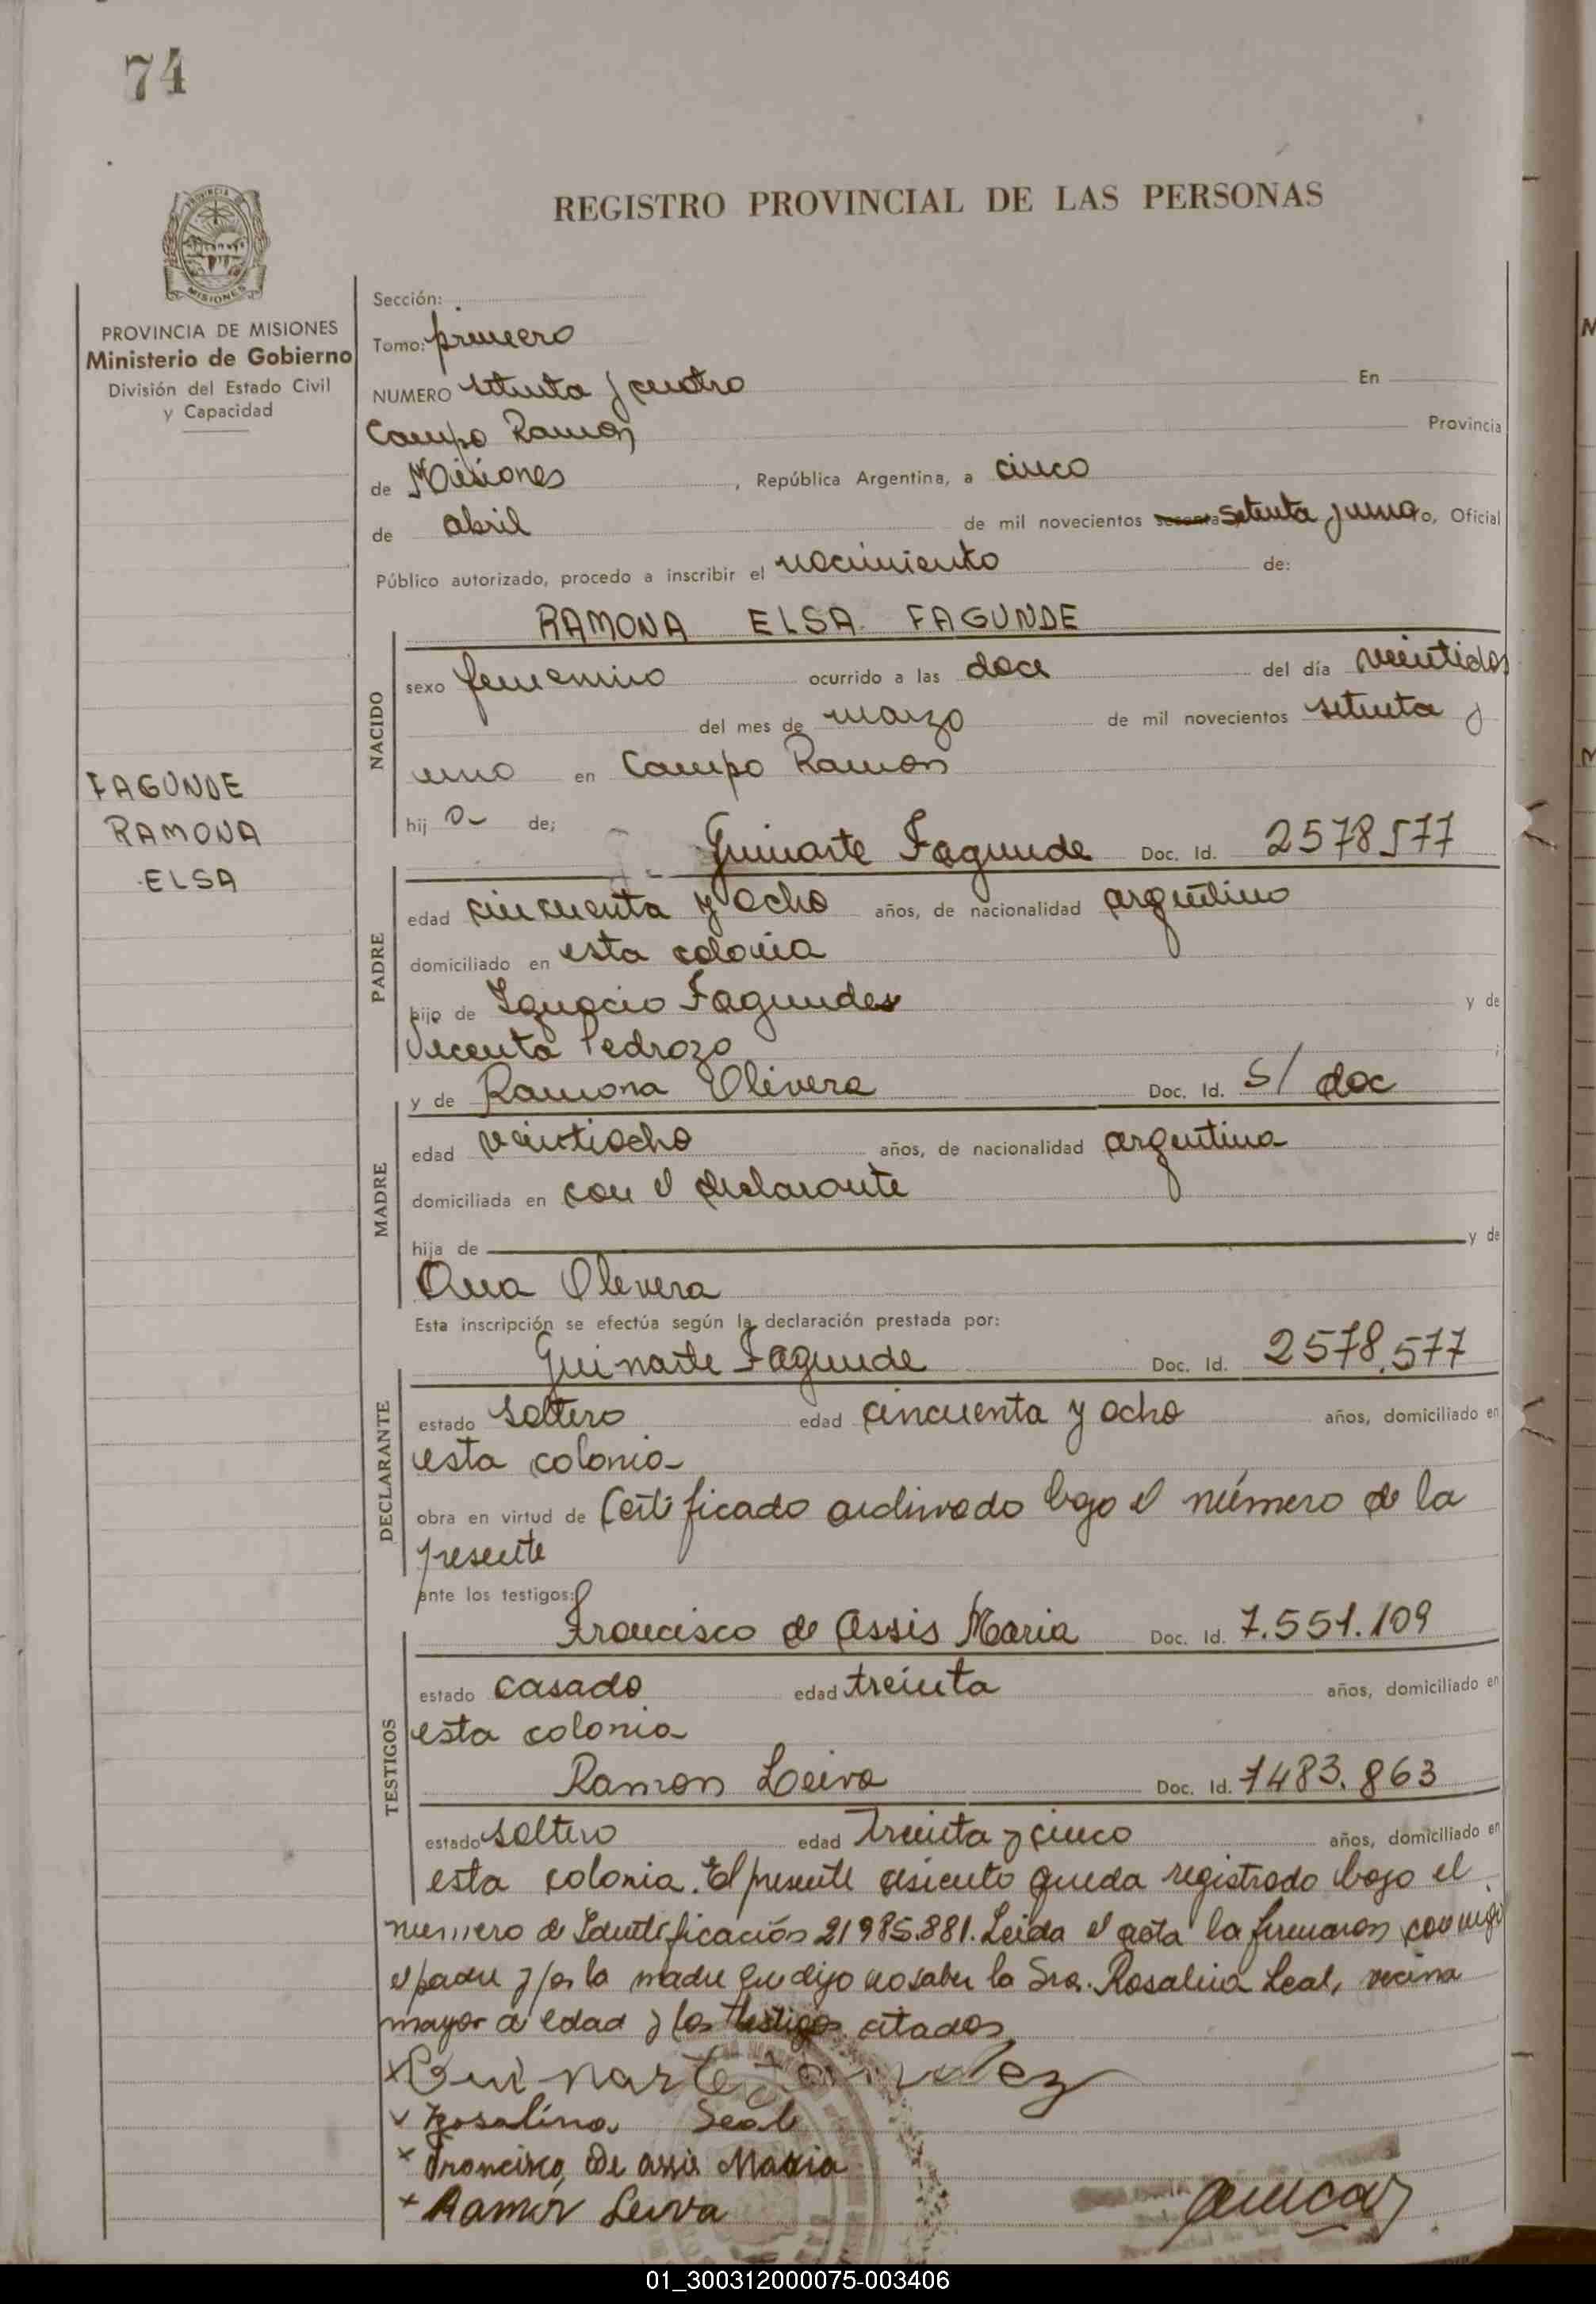 74
REGISTRO PROVINCIAL DE LAS PERSONAS
PROVINCIA DE MISIONES
Ministerio de Gobierno
División del Estado Civil
y Capacidad
FAGUNDE
RAMONA
ELSA
Sección:
Tomo: primero
NUMERO setenta y cuatro En
Campo Ramon Provincia
de Misiones, República Argentina, a cinco
de abril de mil novecientos setenta y uno, Oficial
Público autorizado, procedo a inscribir el nacimiento de:
RAMONA ELSA FAGUNDE
NACIDO
sexo femenino ocurrido a las doce del día veintidos
del mes de marzo de mil novecientos setenta y
uno en Campo Ramon
hij a de;
Guinarte Fagunde Doc. Id. 2578577
PADRE
edad cincuenta y ocho años, de nacionalidad argentino
domiciliado en esta colonia
hijo de Ignacio Fagundes y de
Vicenta Pedrozo
y de Ramona Olivera Doc. Id. S/ doc
MADRE
edad veintiocho años, de nacionalidad argentina
domiciliada en con el declarante
hija de y de
Ana Olivera
Esta inscripción se efectúa según la declaración prestada por:
Guinarte Fagunde Doc. Id. 2578.577
DECLARANTE
estado soltero edad cincuenta y ocho años, domiciliado en
esta colonia
obra en virtud de Certificado archivado bajo el número de la
presente
ante los testigos:
Francisco de Assis Maria Doc. Id. 7.551.109
TESTIGOS
estado casado edad treinta años, domiciliado en
esta colonia
Ramon Leiva Doc. Id. 7483.863
estado soltero edad treinta y cinco años, domiciliado en
esta colonia. El presente asiento queda registrado bajo el
numero de Identificación 21985.881. Leida el acta la firmaron conmigo
el padre y por la madre que dijo no saber la Sra. Rosalina Leal, vecina
mayor de edad y los testigos citados
x Guinarte
x Rosalina Leal
x Francisco De assis Maria
x Ramón Leiva
01_300312000075-003406